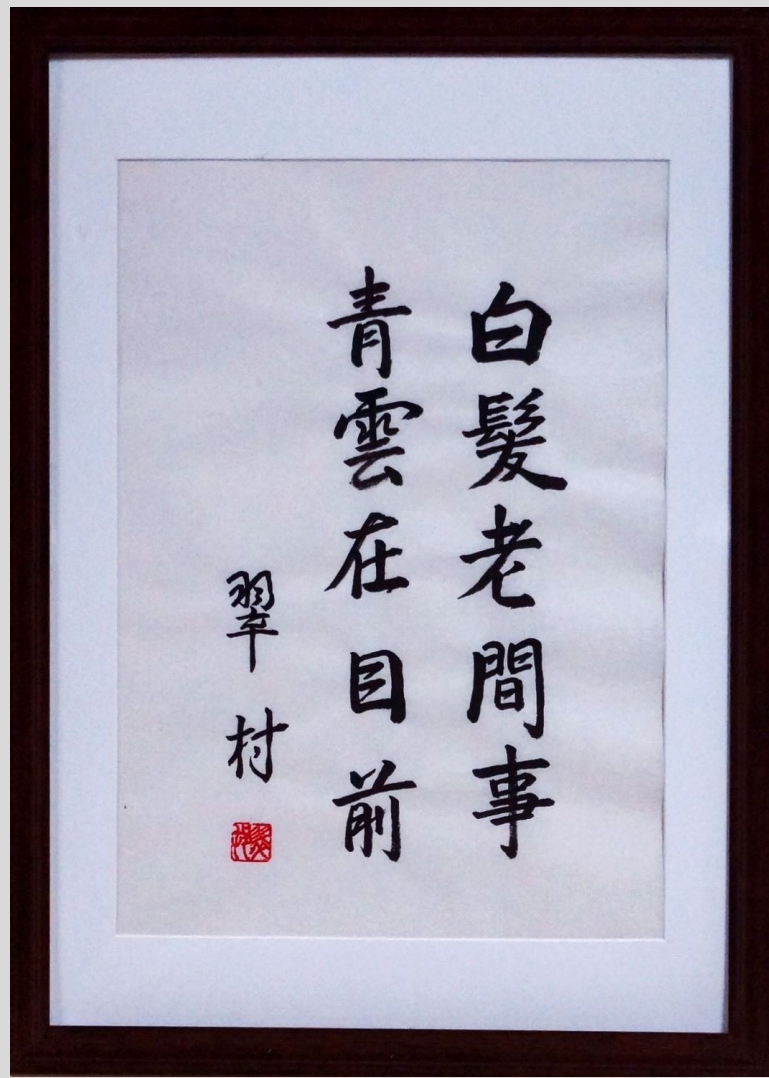 白髮老間事
青雲在目前
翠村